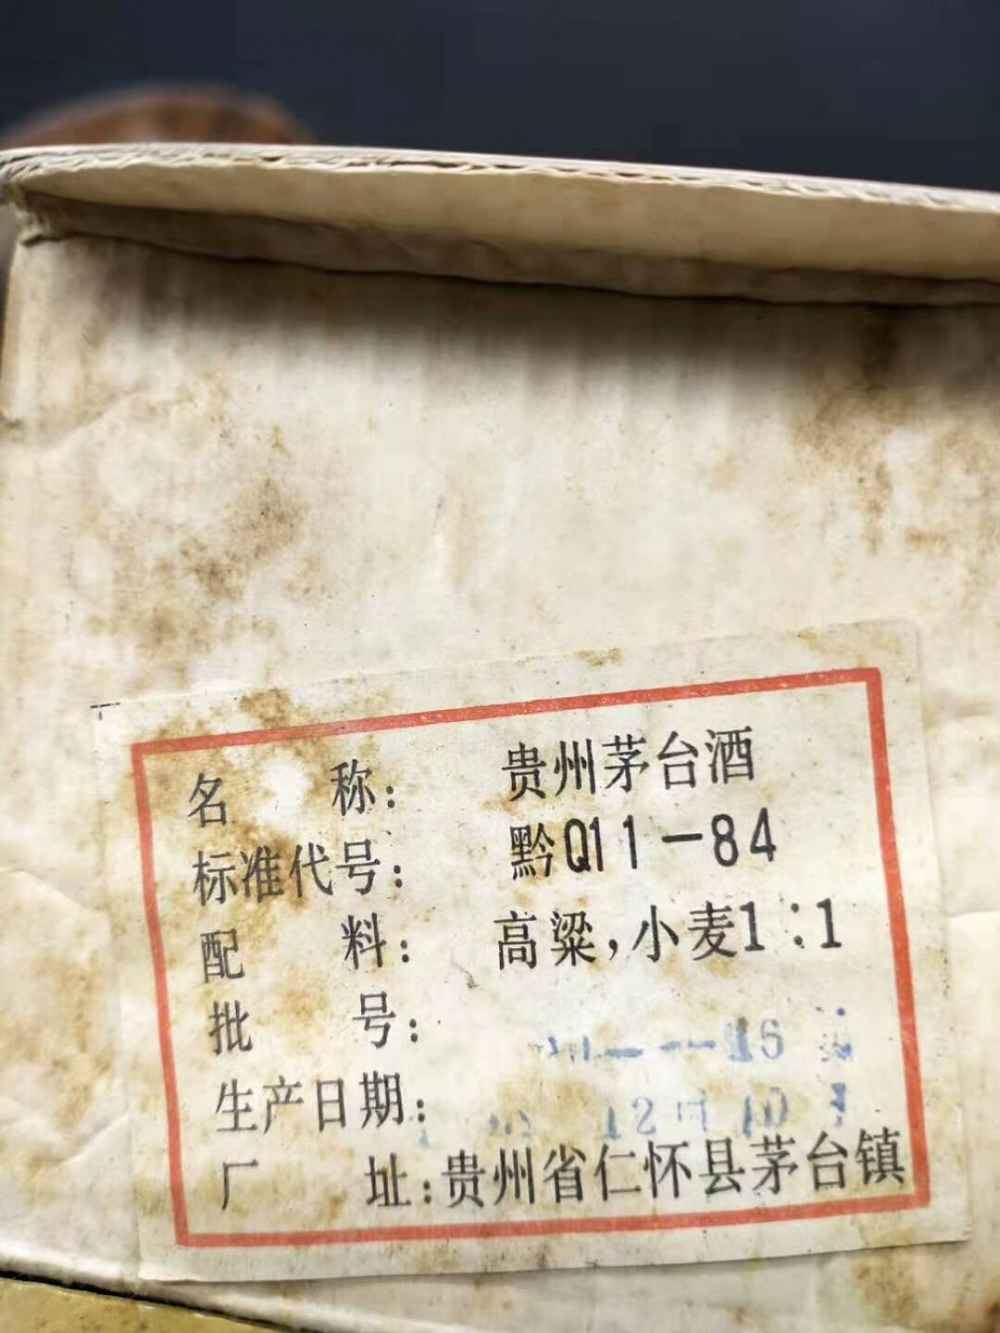 名 称: 贵州茅台酒
标准代号: 黔Q11-84
配 料: 高粱,小麦1:1
批 号: 16
生产日期: 12月10
厂 址:贵州省仁怀县茅台镇